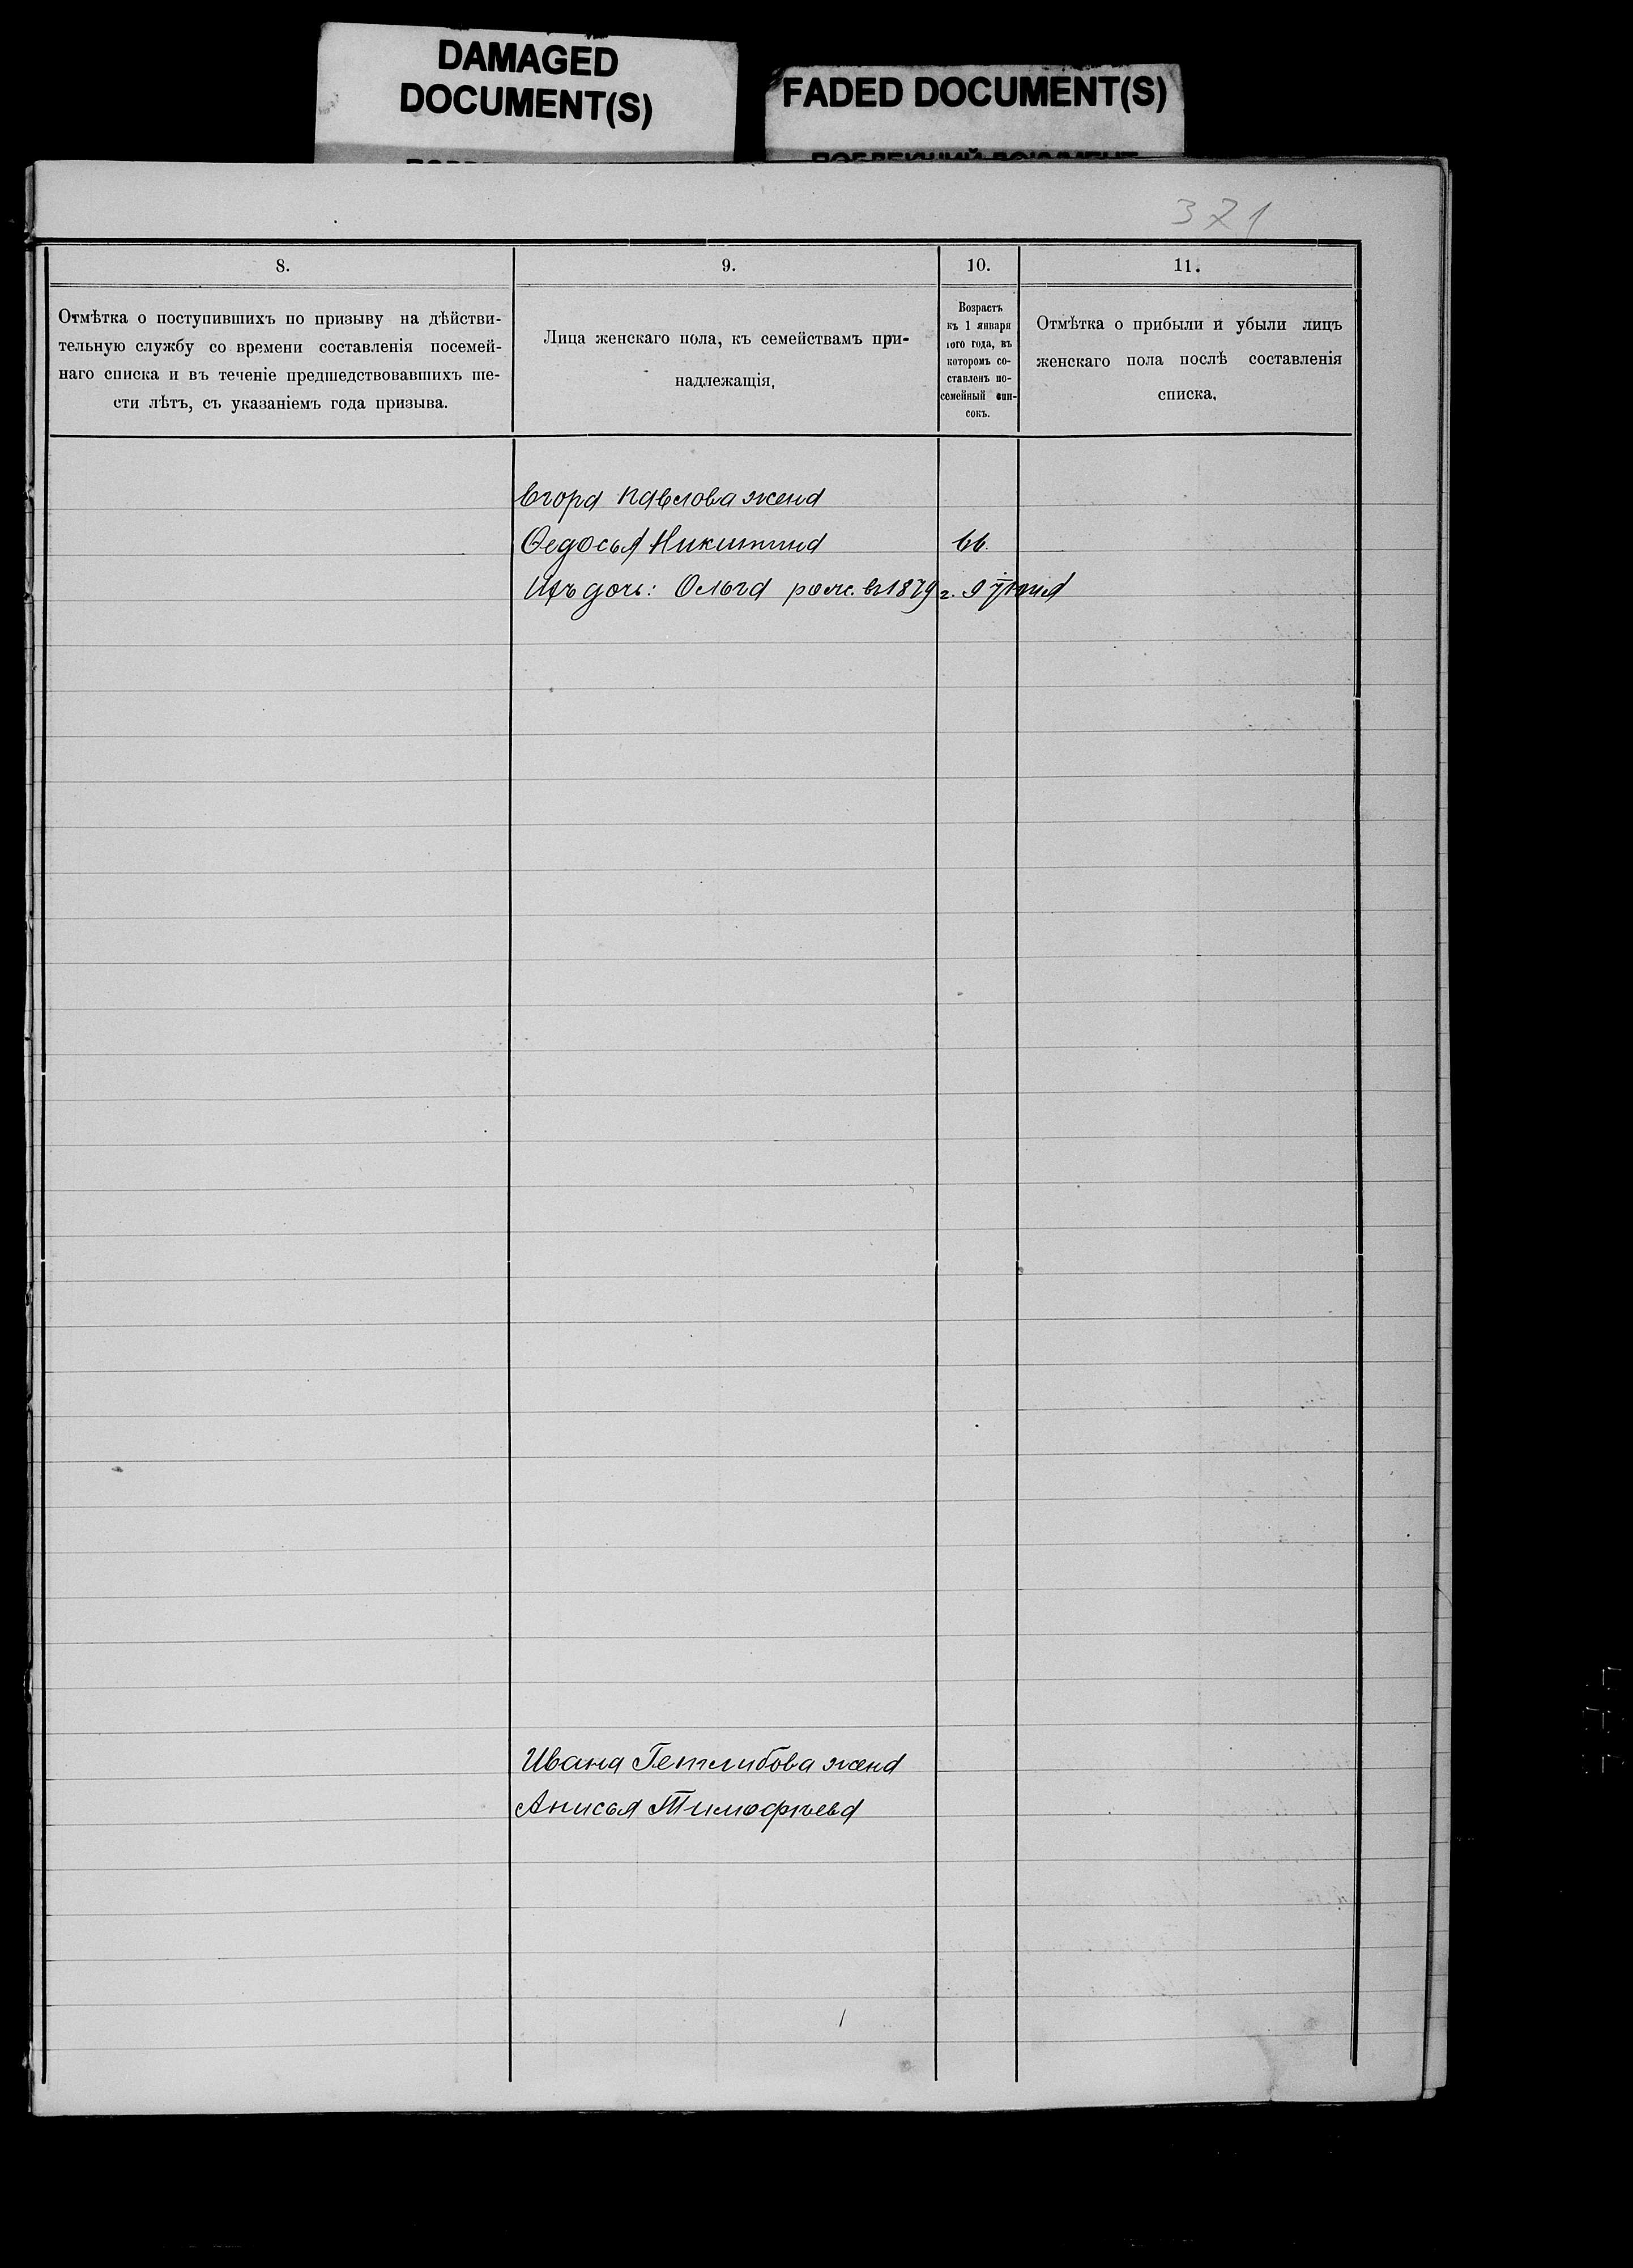 DAMAGED
DOCUMENT(S)
FADED DOCUMENT(S)
371
8.
9.
10.
11.
Отмѣтка о поступившихъ по призыву на дѣйстви-
тельную службу со времени составленія посемей-
наго списка и въ теченіе предшедствовавшихъ ше-
сти лѣтъ, съ указаніемъ года призыва.
Лица женскаго пола, къ семействамъ при-
надлежащія,
Возрастъ
къ 1 января
того года, въ
которомъ со-
ставленъ по-
семейный спи-
сокъ.
Отмѣтка о прибыли и убыли лицъ
женскаго пола послѣ составленія
списка,
Егора Павлова жена
Ѳедосья Никитина 66.
Ихъ дочь: Ольга рож. въ 1879 г. 9 Іюня
Ивана Готлибова жена
Анисья Тимофѣева